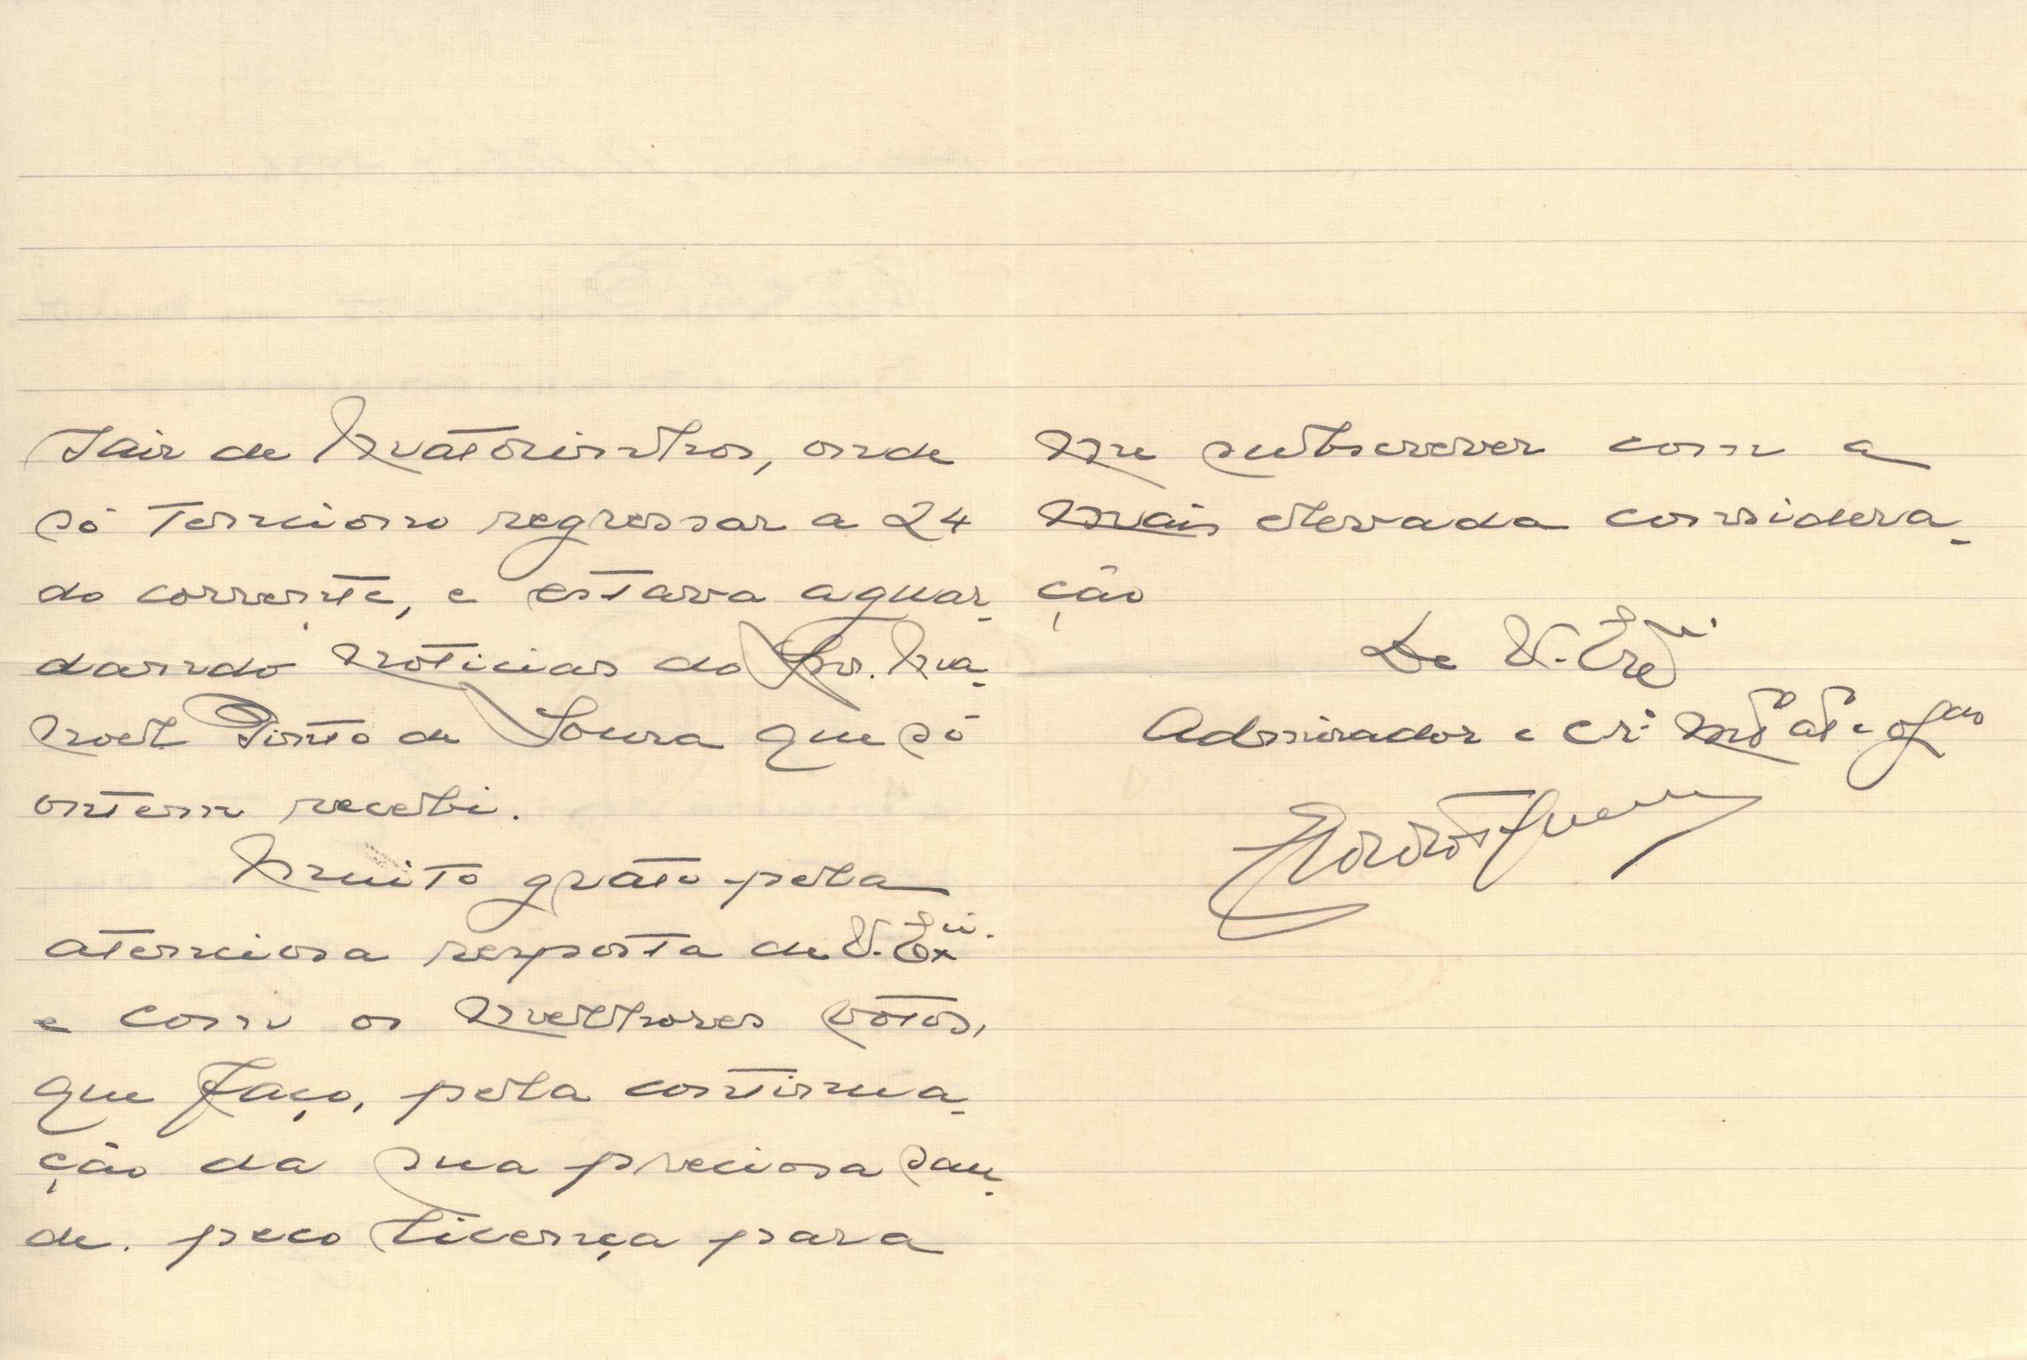 sair de Matosinhos, onde
só tenciono regressar a 24
do corrente, e estava aguar-
dando noticias do Snr. Ma-
noel Pinto de Sousa que só
ontem recebi.
Muito gráto pela
atenciosa resposta de V. Ex.
e com os melhores vótos,
que faço, pela continua-
ção da sua preciosa sau-
de. peço licença para
me subscrever com a
mais elevada considera-
ção
De V. Exa.
Admirador e Cr.º mtº atº e